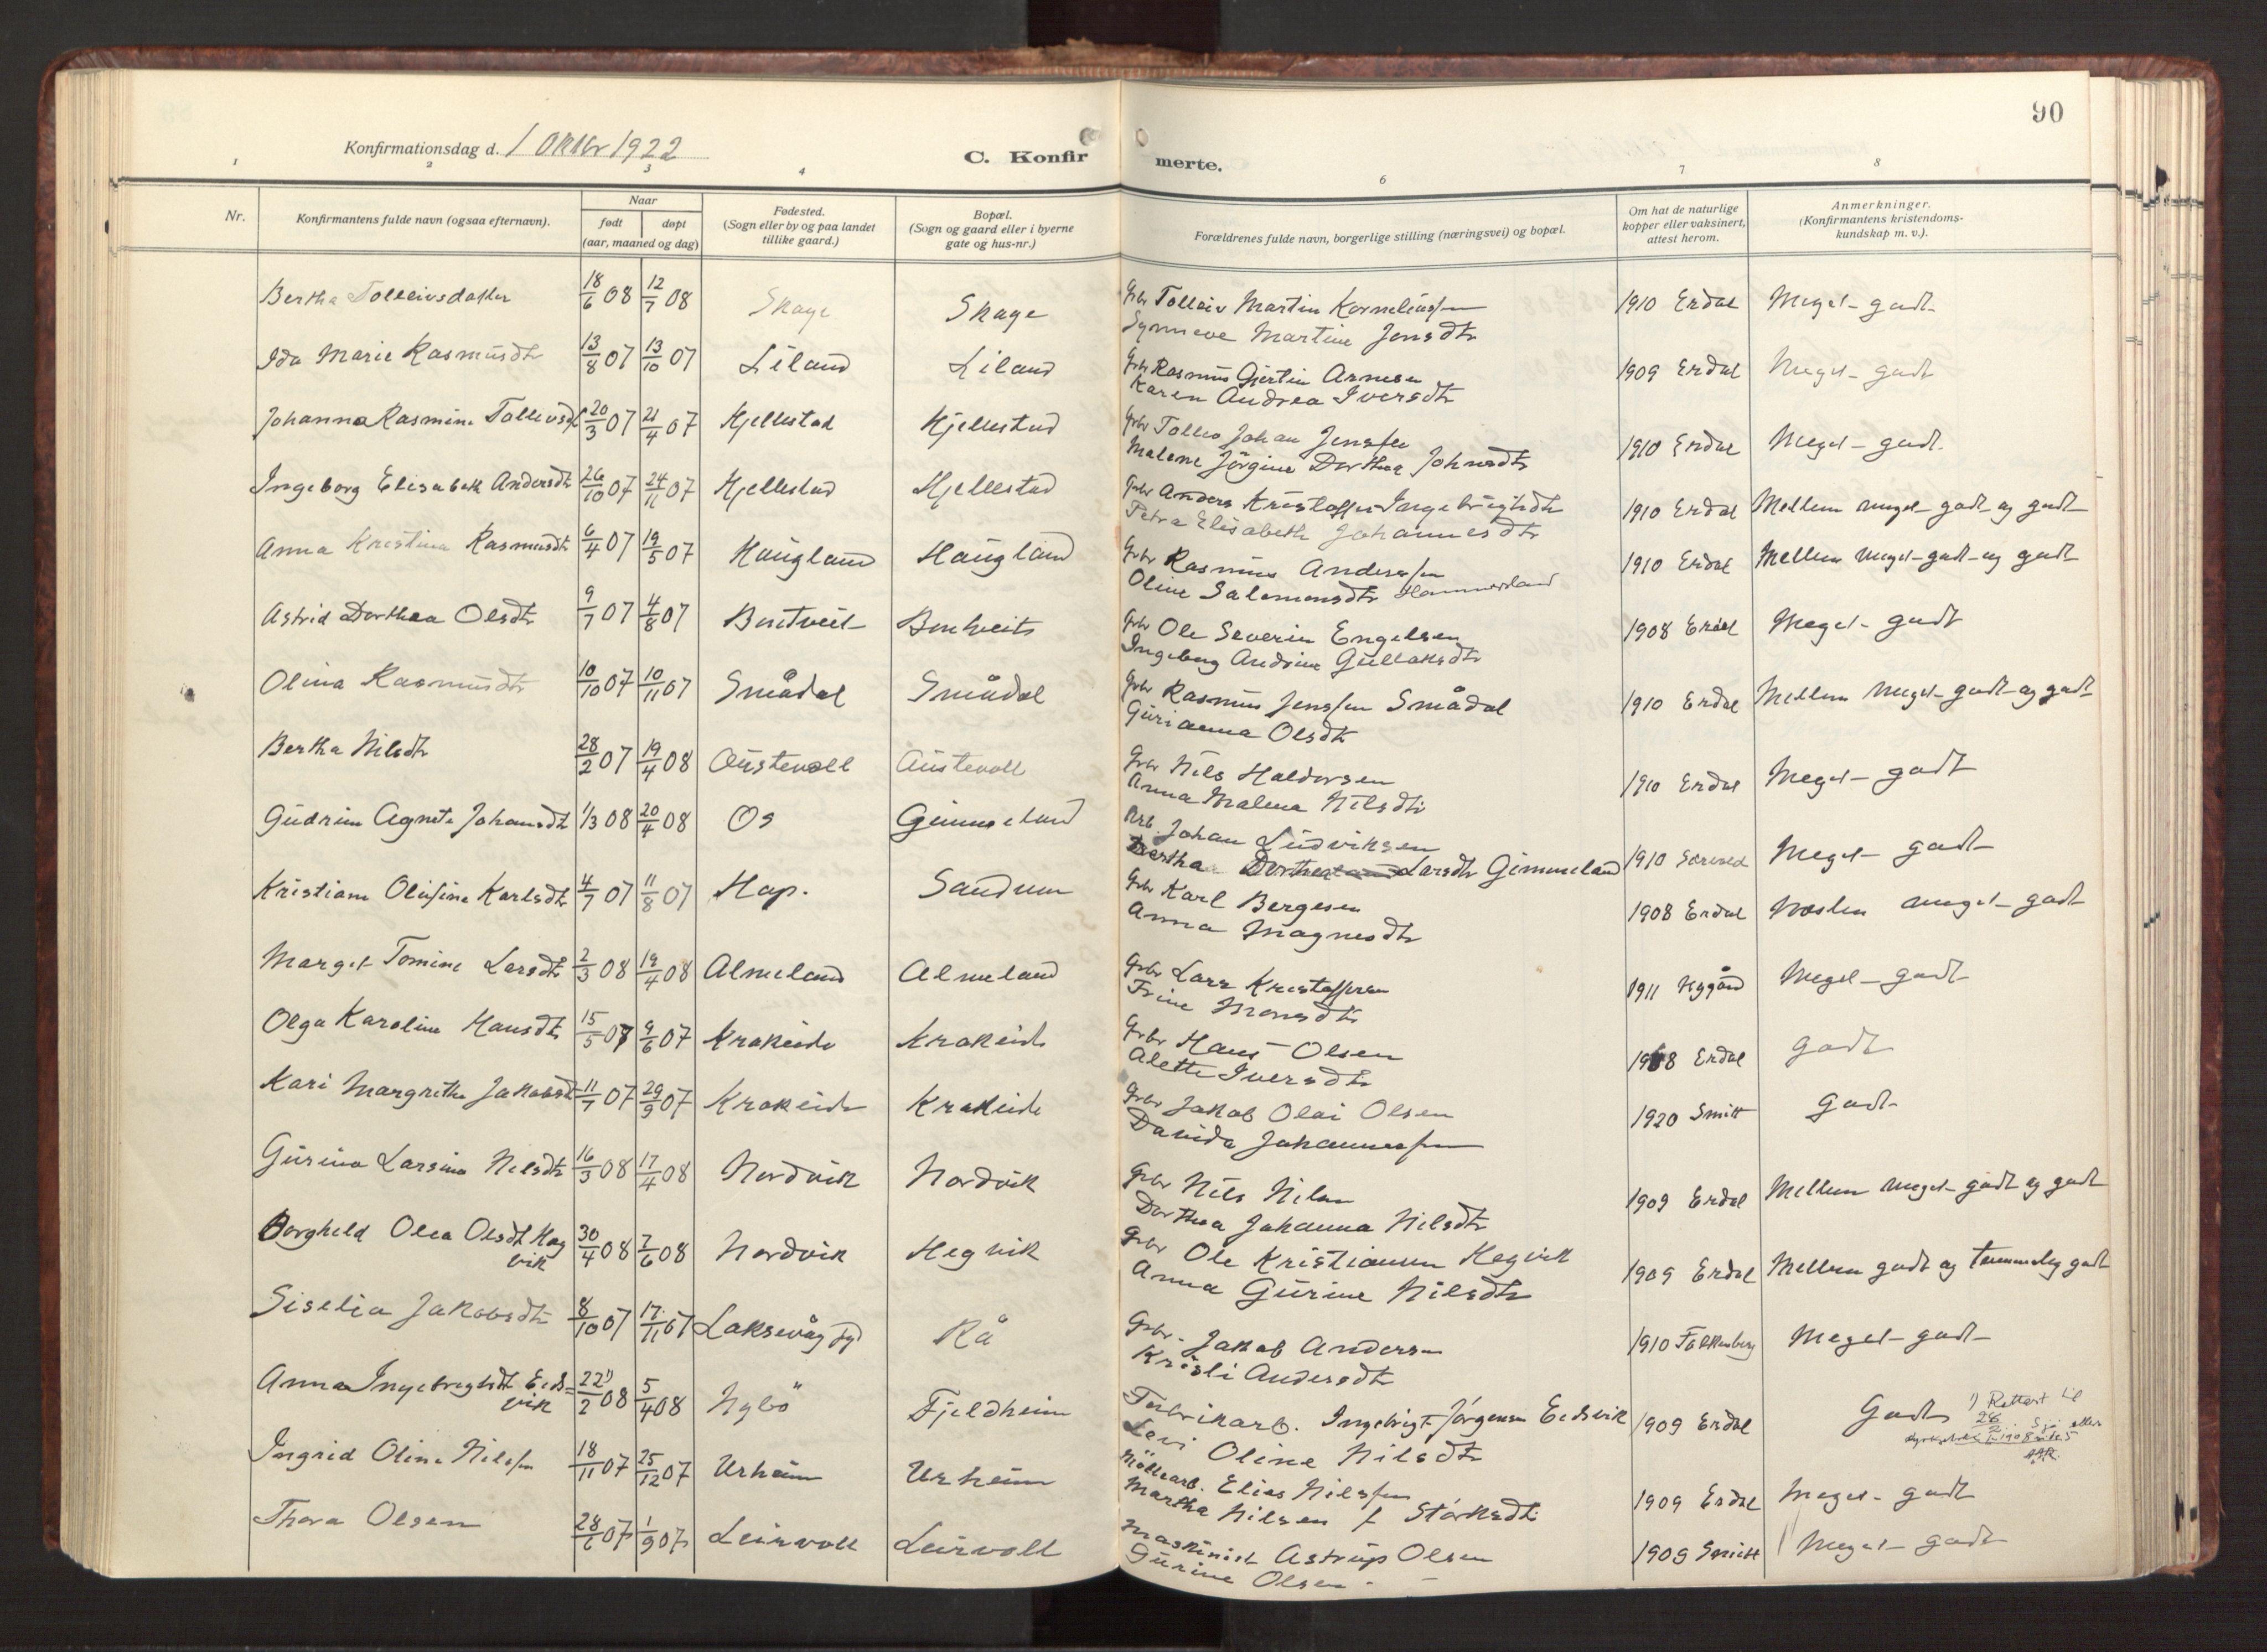 90
Konfirmationsdag d. 1 Oktbr 1922
C. Konfirmerte.
1 2 3 4 6 7 8
Nr.
Konfirmantens fulde navn (ogsaa efternavn).
Naar
født døpt
(aar, maaned og dag)
Fødested.
(Sogn eller by og paa landet
tillike gaard.)
Bopæl.
(Sogn og gaard eller i byerne
gate og hus-nr.)
Forældrenes fulde navn, borgerlige stilling (næringsvei) og bopæl.
Om hat de naturlige
kopper eller vaksinert,
attest herom.
Anmerkninger.
(Konfirmantens kristendoms-
kundskap m. v.).
Bertha Tolleivsdatter 18/6 08 12/7 08 Skage Skage Gbr Tolleiv Martin Kornelius/sen 1910 Erdal Meget godt
Synneve Martine Jensdtr
Ida Marie Rasmusdtr 13/8 07 13/10 07 Liland Liland Gbr Rasmus Gjertin Arnesen 1909 Erdal Meget godt
Karen Andrea Iversdtr
Johanna Rasmine Tollevsdtr 20/3 07 21/4 07 Kjellestad Kjellestad Gbr Tollev Johan Jenssen 1910 Erdal Meget godt
Malene Jørgine Dorthea Johnsdtr
Ingeborg Elisabeth Andersdtr 26/10 07 24/11 07 Hjellestad Hjellestad Gbr Anders Kristoffer Ingebrigtsdtr 1910 Erdal Mellem meget godt og godt
Petra Elisabeth Johannesdtr
Anna Kristina Rasmusdtr 6/4 07 19/5 07 Haugland Haugland Gbr Rasmus Anderssen 1910 Erdal Mellem meget godt og godt
Oline Salomonsdtr Hammersland
Astrid Dorthea Olsdtr 9/7 07 4/8 07 Bontveit Bontveit Gbr Ole Severin Engelsen 1908 Erdal Meget godt
Ingeborg Andrine Gullaksdtr
Olina Rasmusdtr 10/10 07 10/11 07 Smådal Smådal Gbr Rasmus Jenssen Smådal 1910 Erdal Mellem meget godt og godt
Gurianna Olsdtr
Bertha Nilsdtr 28/2 07 19/4 08 Austevoll Austevoll Gbr Nils Haldorsen 1910 Erdal Meget godt
Anna Malena Nilsdtr
Gudrun Agnete Johansdtr 1/3 08 20/4 08 Os Gimmeland Arb. Johan Ludviksen 1910 Meget godt
Bertha Larsdtr Gimmeland
Kristiane Olufine Karlsdtr 4/7 07 11/8 07 Hop. Sandven Gbr Karl Bergesen 1908 Erdal Næsten meget godt
Anna Magnesdtr
Marget Tomine Larsdtr 2/3 08 19/4 08 Almeland Almeland Gbr Lars Kristoffersen 1911 Nygård Meget godt
Trine Monsdtr
Olga Karoline Hansdtr 15/5 07 9/6 07 Krakeide Krakeide Gbr Hans Olsen 1908 Erdal godt
Alette Iversdtr
Kari Margrethe Jakobsdtr 11/7 07 29/9 07 Krokeide Krokeide Gbr Jakob Olai Olsen 1920 Smitt godt
Davida Johannessen
Gurina Larsina Nilsdtr 16/3 08 17/4 08 Nordvik Nordvik Gbr Nils Nilsen 1909 Erdal Mellem meget godt og godt
Dorthea Johanna Nilsdtr
Borghild Olea Olsdtr Heg
vik 30/4 08 7/6 08 Nordvik Hegvik Gbr Ole Kristiansen Hegvik 1909 Erdal Mellem godt og temmelig godt
Anna Gurine Nilsdtr
Siselia Jakobsdtr 8/10 07 17/11 07 Laksevåg Rå Gbr. Jakob Andersen 1910 Falkenberg Meget godt
Kristi Andersdtr
Anna Ingebrigtsdtr Eids=
vik 22¹⁾/2 08 5/4 08 Nybö Fjeldheim Fabrikarb. Ingebrigt Jørgensen Eidsvik 1909 Erdal Godt 1) Rettet til
28/2
Lavi Oline Nilsdtr
Ingrid Oline Nilssen 18/11 07 25/12 07 Urheim Urheim Möllearb. Elias Nilssen 1909 Erdal Meget godt
Martha Nilsen f Størksdtr
Thora Olsen 28/6 07 1/9 07 Leirvoll Leirvoll Maskinist Astrup Olsen 1909 Smitt Meget godt
Gurine Olsen